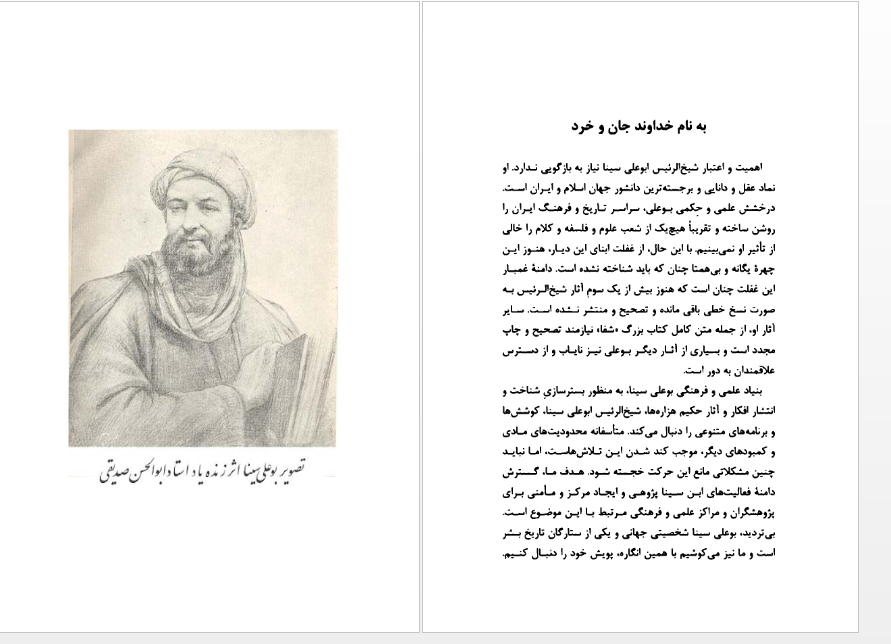 به نام خداوند جان و خرد
اهمیت و اعتبار شیخ‌الرئیس ابوعلی سینا نیاز به بازگویی ندارد. او
نماد عقل و دانایی و برجسته‌ترین دانشور جهان اسلام و ایران است.
درخشش علمی و حِکمی بوعلی، سراسر تاریخ و فرهنگ ایران را
روشن ساخته و تقریباً هیچ‌یک از شعب علوم و فلسفه و کلام را خالی
از تأثیر او نمی‌بینیم. با این حال، از غفلت ابنای این دیار، هنوز این
چهرۀ یگانه و بی‌همتا چنان که باید شناخته نشده است. دامنۀ غمبار
این غفلت چنان است که هنوز بیش از یک سوم آثار شیخ‌الرئیس به
صورت نسخ خطی باقی مانده و تصحیح و منتشر نشده است. سایر
آثار او، از جمله متن کامل کتاب بزرگ «شفا» نیازمند تصحیح و چاپ
مجدد است و بسیاری از آثار دیگر بوعلی نیز نایاب و از دسترس
علاقمندان به دور است.
بنیاد علمی و فرهنگی بوعلی سینا، به منظور بسترسازیِ شناخت و
انتشار افکار و آثار حکیم هزاره‌ها، شیخ‌الرئیس ابوعلی سینا، کوشش‌ها
و برنامه‌های متنوعی را دنبال می‌کند. متأسفانه محدودیت‌های مادی
و کمبودهای دیگر، موجب کند شدن این تلاش‌هاست، اما نباید
چنین مشکلاتی مانع این حرکت خجسته شود. هدف ما، گسترش
دامنۀ فعالیت‌های ابن سینا پژوهی و ایجاد مرکز و مأمنی برای
پژوهشگران و مراکز علمی و فرهنگی مرتبط با این موضوع است.
بی‌تردید، بوعلی سینا شخصیتی جهانی و یکی از ستارگان تاریخ بشر
است و ما نیز می‌کوشیم با همین انگاره، پویش خود را دنبال کنیم.
تصویر بوعلی سینا اثر زنده یاد استاد ابوالحسن صدیقی